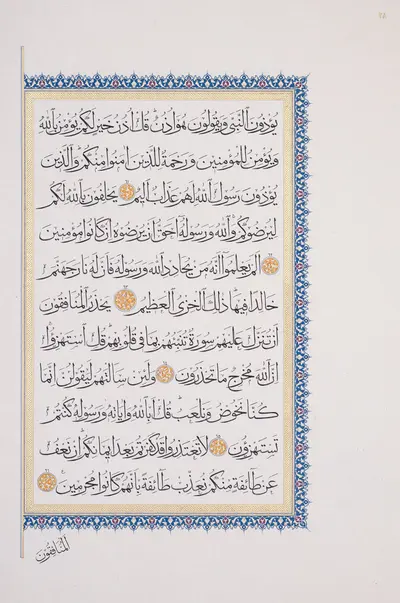 يُؤْذُونَ النَّبِيَّ وَيَقُولُونَ هُوَ أُذُنٌ قُلْ أُذُنُ خَيْرٍ لَكُمْ يُؤْمِنُ بِاللَّهِ
وَيُؤْمِنُ لِلْمُؤْمِنِينَ وَرَحْمَةٌ لِلَّذِينَ آمَنُوا مِنْكُمْ وَالَّذِينَ
يُؤْذُونَ رَسُولَ اللَّهِ لَهُمْ عَذَابٌ أَلِيمٌ ۝ يَحْلِفُونَ بِاللَّهِ لَكُمْ
لِيُرْضُوكُمْ وَاللَّهُ وَرَسُولُهُ أَحَقُّ أَنْ يُرْضُوهُ إِنْ كَانُوا مُؤْمِنِينَ
۝ أَلَمْ يَعْلَمُوا أَنَّهُ مَنْ يُحَادِدِ اللَّهَ وَرَسُولَهُ فَأَنَّ لَهُ نَارَ جَهَنَّمَ
خَالِدًا فِيهَا ذَلِكَ الْخِزْيُ الْعَظِيمُ ۝ يَحْذَرُ الْمُنَافِقُونَ
أَنْ تُنَزَّلَ عَلَيْهِمْ سُورَةٌ تُنَبِّئُهُمْ بِمَا فِي قُلُوبِهِمْ قُلِ اسْتَهْزِءُوا
إِنَّ اللَّهَ مُخْرِجٌ مَا تَحْذَرُونَ ۝ وَلَئِنْ سَأَلْتَهُمْ لَيَقُولُنَّ إِنَّمَا
كُنَّا نَخُوضُ وَنَلْعَبُ قُلْ أَبِاللَّهِ وَآيَاتِهِ وَرَسُولِهِ كُنْتُمْ
تَسْتَهْزِءُونَ ۝ لَا تَعْتَذِرُوا قَدْ كَفَرْتُمْ بَعْدَ إِيمَانِكُمْ إِنْ نَعْفُ
عَنْ طَائِفَةٍ مِنْكُمْ نُعَذِّبْ طَائِفَةً بِأَنَّهُمْ كَانُوا مُجْرِمِينَ ۝
الْمُنَافِقُونَ